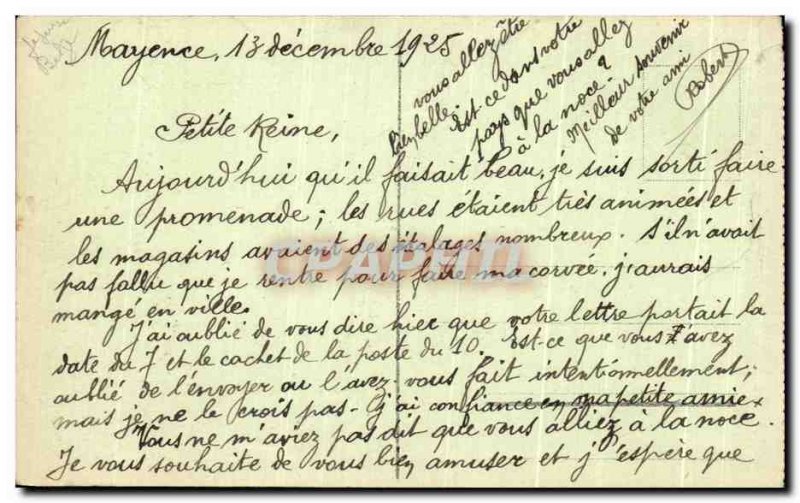 Mayence, 13 décembre 1925
Petite Reine,
Aujourd'hui qu'il faisait beau, je suis sorti faire
une promenade ; les rues étaient très animées et
les magasins avaient des étalages nombreux. S'il n'avait
pas fallu que je rentre pour faire ma corvée, j'aurais
mangé en ville.
J'ai oublié de vous dire hier que votre lettre portait la
date du 7 et le cachet de la poste du 10. Est-ce que vous l'avez
oublié de l'envoyer ou l'avez-vous fait intentionnellement,
mais je ne le crois pas - j'ai confiance en ma petite amie.
Vous ne m'aviez pas dit que vous alliez à la noce.
Je vous souhaite de vous bien amuser et j'espère que
vous allez être
bien belle.
Est-ce dans votre
pays que vous allez
à la noce ?
Meilleur souvenir
de votre ami
Robert
CPAPHIL